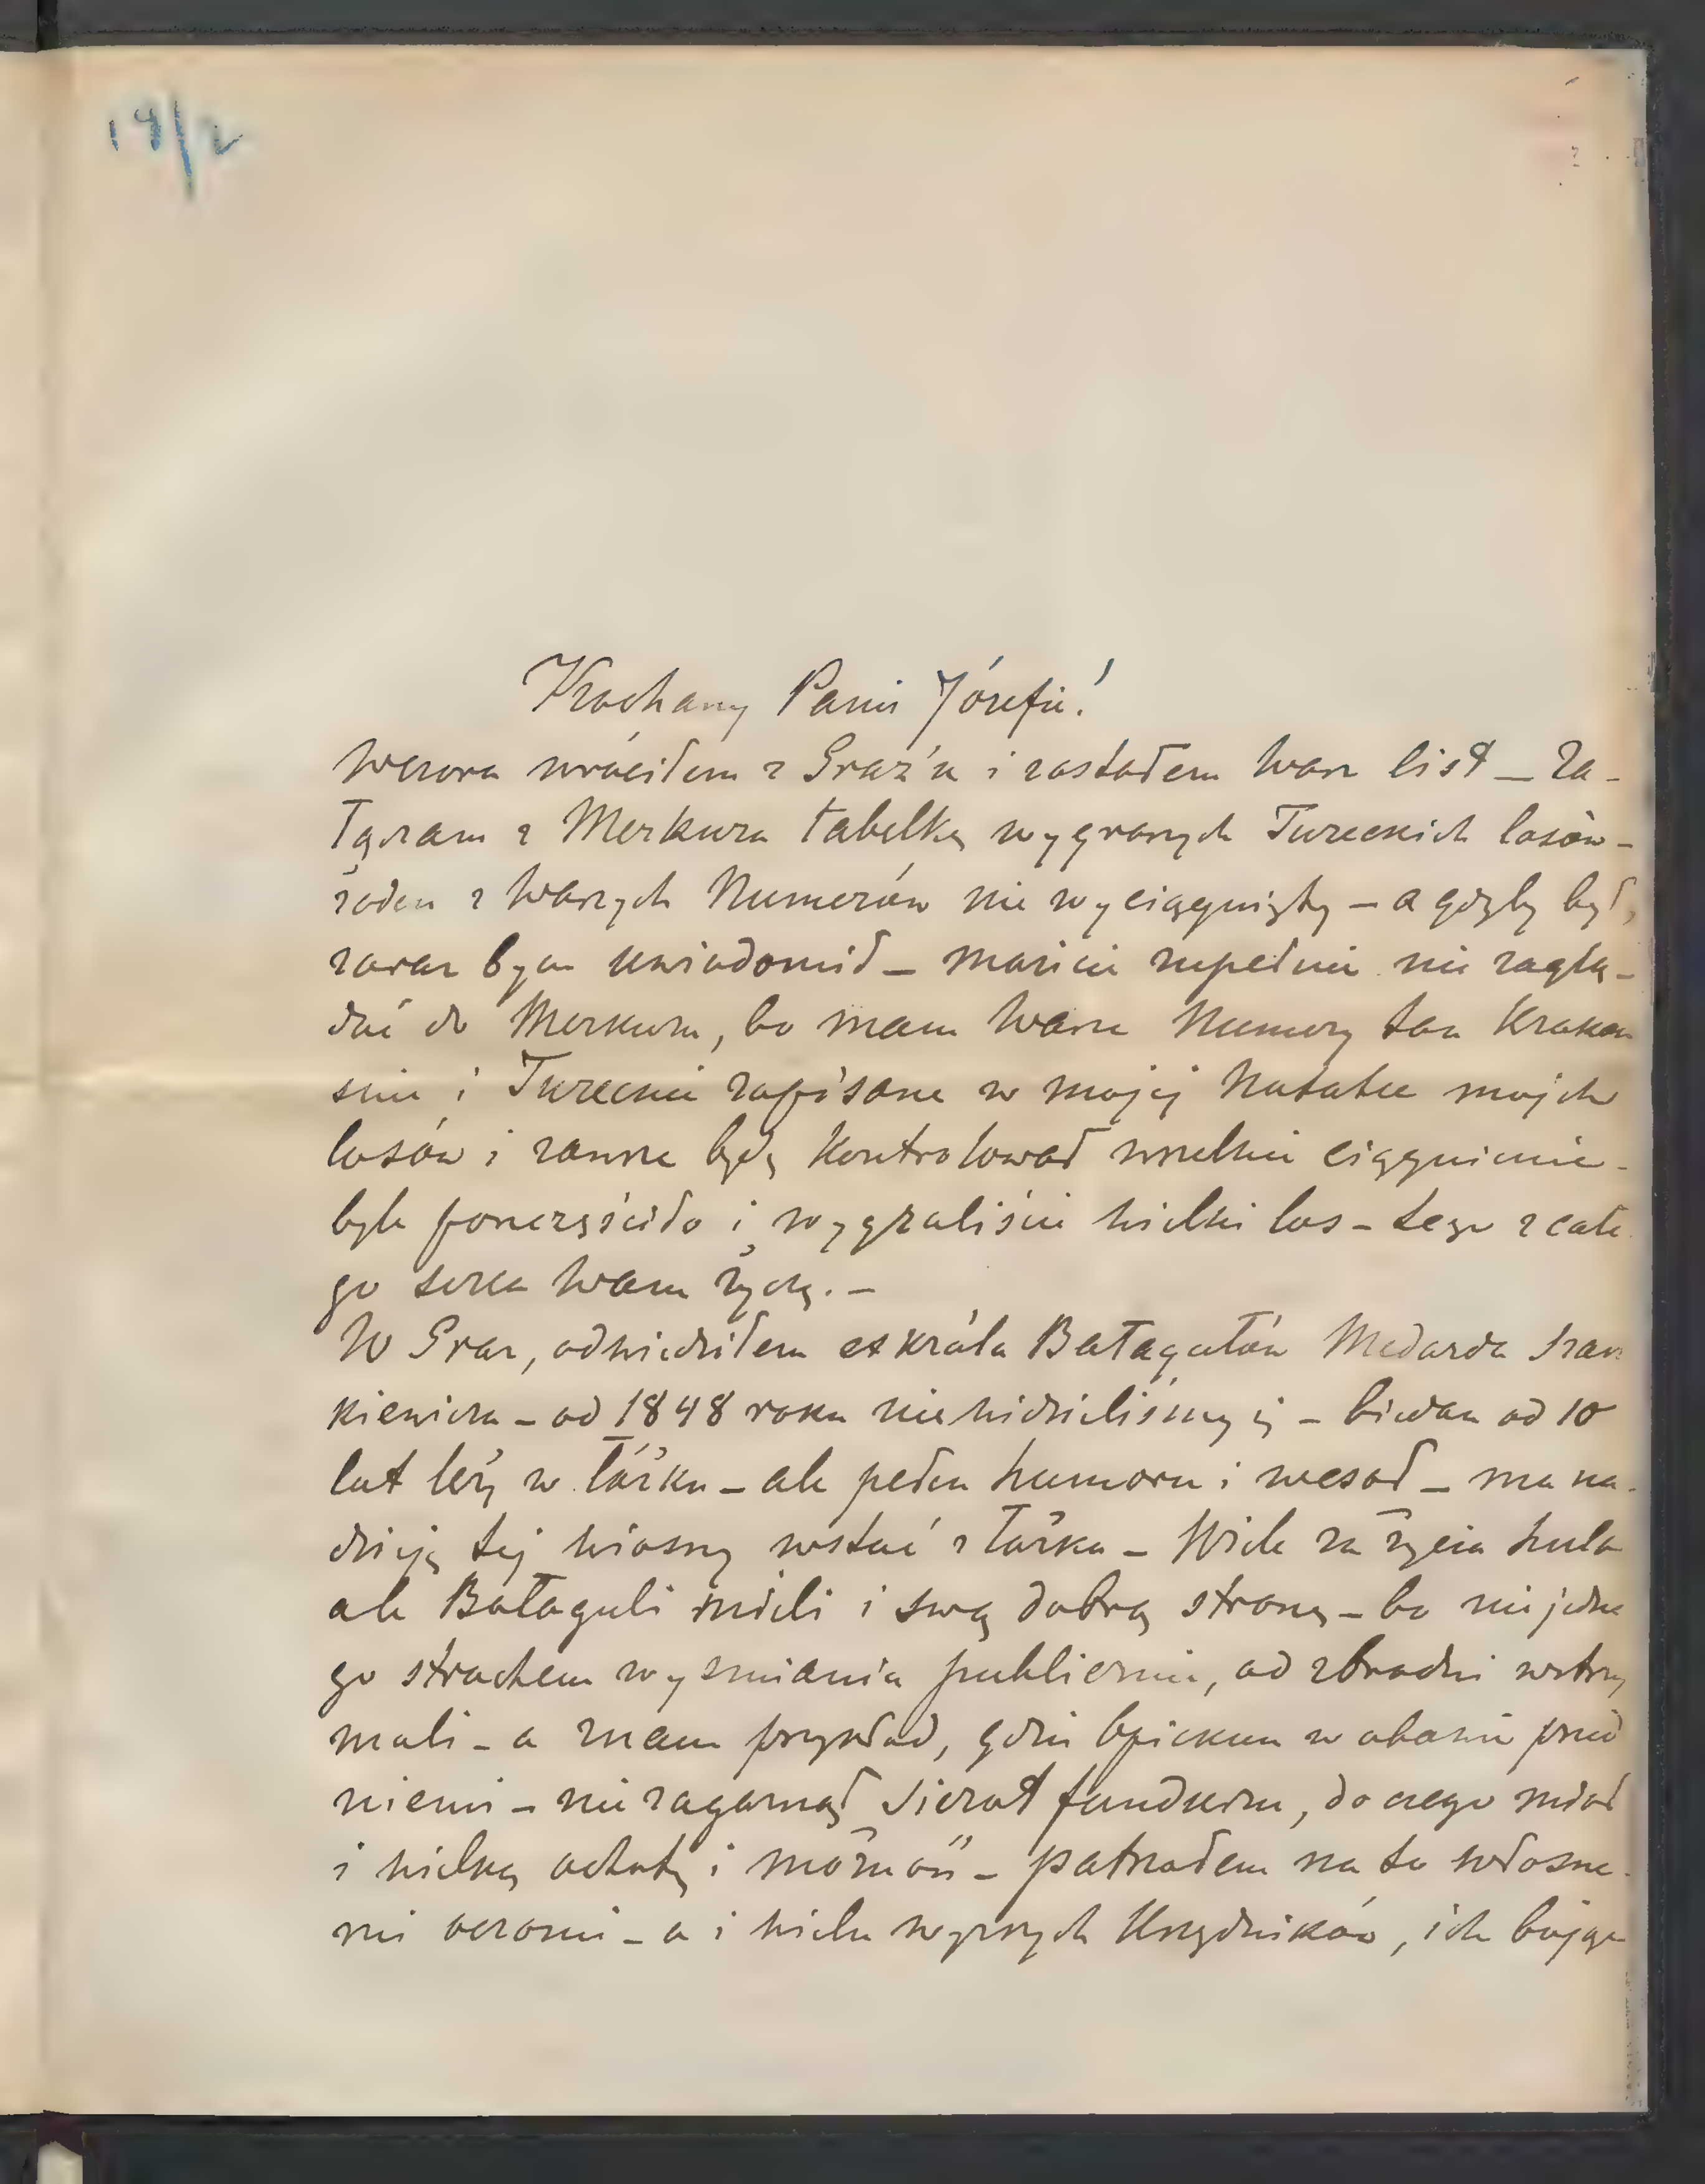 19/2
Kochany Panie Józefie!
Wczora wróciłem z Graz'u i zastałem Wasz list – Za-
łączam z Merkura tabelkę wygranych Tureckich losów –
żaden z Waszych Numerów nie wyciągnięty – a gdyby był,
zaraz bym uwiadomił – możecie zupełnie nie zaglą-
dać do Merkura, bo mam Wasze Numery tak Krakow
skie i Tureckie zapisane w mojej Notatce mojch
losów i zawsze będę kontrolował wszelkie ciągnienie –
byle poszczęściło i wygraliście wielki los – tego z całe
go serca Wam życzę. –
W Graz, odwiedziłem exkróla Bałagułów Medarda
kiewicza – od 1848 roku nie widzieliśmy się – biedak od 10
lat leży w łóżku – ale pełen humoru i wesół – ma na-
dzieję tej wiosny wstać z łóżka – Wiele za życia hula
ale Bałaguli mieli i swą dobrą stronę – bo nie jedne
go strachem wysmiania publicznie, od zbrodni wstrzy
mali – a znam przykład, gdzie Opiekun w obawie przed
niemi – nie zagarnął Sierot funduszu, do czego miał
i wielką ochotę i możność – patrzałem na to własne-
mi oczami – a i wielu wyższych Urzędników, ich bojąc